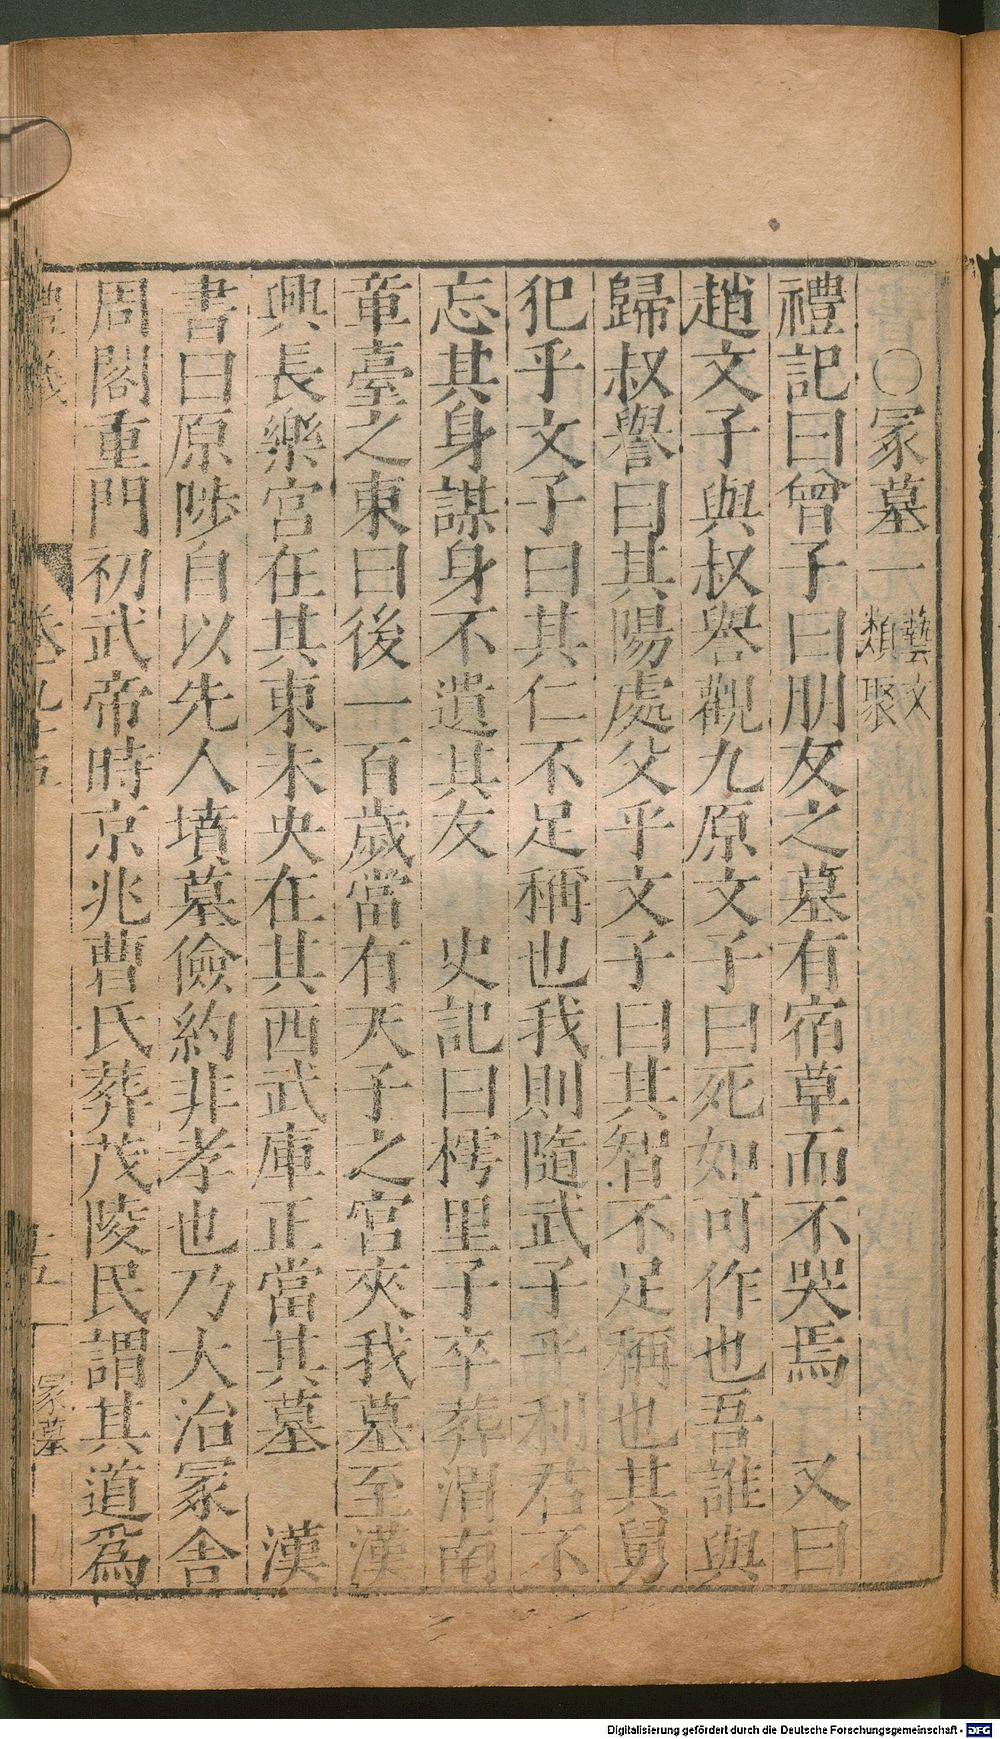 ○冢墓一 藝文類聚
禮記曰曾子曰朋友之墓有宿草而不哭焉 又曰
趙文子與叔譽觀九原文子曰死如可作也吾誰與
歸叔譽曰其陽處父乎文子曰其智不足稱也其舅
犯乎文子曰其仁不足稱也我則隨武子乎利君不
忘其身謀身不遺其友 史記曰樗里子卒葬渭南
章臺之東曰後一百歲當有天子之宮夾我墓至漢
興長樂宮在其東未央在其西武庫正當其墓 漢
書曰原陟自以先人墳墓儉約非孝也乃大治冢舍
周閣重門初武帝時京兆曹氏葬茂陵民謂其道爲
禮儀 卷九十五 五 冢墓
Digitalisierung gefördert durch die Deutsche Forschungsgemeinschaft - DFG